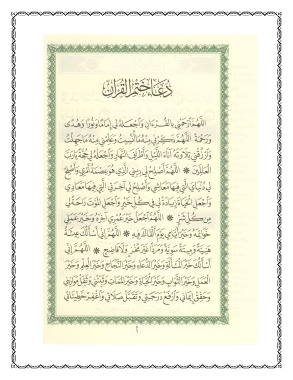 دُعَاءُ خَتْمِ الْقُرْآنِ
اللَّهُمَّ ارْحَمْنِي بِالْقُرْءَانِ وَاجْعَلْهُ لِي إِمَامًا وَنُورًا وَهُدًى
وَرَحْمَةً اللَّهُمَّ ذَكِّرْنِي مِنْهُ مَا نَسِيتُ وَعَلِّمْنِي مِنْهُ مَا جَهِلْتُ
وَارْزُقْنِي تِلَاوَتَهُ آنَاءَ اللَّيْلِ وَأَطْرَافَ النَّهَارِ وَاجْعَلْهُ لِي حُجَّةً يَارَبَّ
الْعَالَمِينَ * اللَّهُمَّ أَصْلِحْ لِي دِينِي الَّذِي هُوَ عِصْمَةُ أَمْرِي وَأَصْلِحْ
لِي دُنْيَايَ الَّتِي فِيهَا مَعَاشِي وَأَصْلِحْ لِي آخِرَتِي الَّتِي فِيهَا مَعَادِي
وَاجْعَلِ الْحَيَاةَ زِيَادَةً لِي فِي كُلِّ خَيْرٍ وَاجْعَلِ الْمَوْتَ رَاحَةً لِي
مِنْ كُلِّ شَرٍّ * اللَّهُمَّ اجْعَلْ خَيْرَ عُمْرِي آخِرَهُ وَخَيْرَ عَمَلِي
خَوَاتِمَهُ وَخَيْرَ أَيَّامِي يَوْمَ أَلْقَاكَ فِيهِ * اللَّهُمَّ إِنِّي أَسْأَلُكَ عِيشَةً
هَنِيَّةً وَمِيتَةً سَوِيَّةً وَمَرَدًّا غَيْرَ مُخْزٍ وَلَا فَاضِحٍ * اللَّهُمَّ إِنِّي
أَسْأَلُكَ خَيْرَ الْمَسْأَلَةِ وَخَيْرَ الدُّعَاءِ وَخَيْرَ النَّجَاحِ وَخَيْرَ الْعِلْمِ وَخَيْرَ
الْعَمَلِ وَخَيْرَ الثَّوَابِ وَخَيْرَ الْحَيَاةِ وَخَيْرَ الْمَمَاتِ وَثَبِّتْنِي وَثَقِّلْ مَوَازِينِي
وَحَقِّقْ إِيمَانِي وَارْفَعْ دَرَجَتِي وَتَقَبَّلْ صَلَاتِي وَاغْفِرْ خَطِيئَاتِي